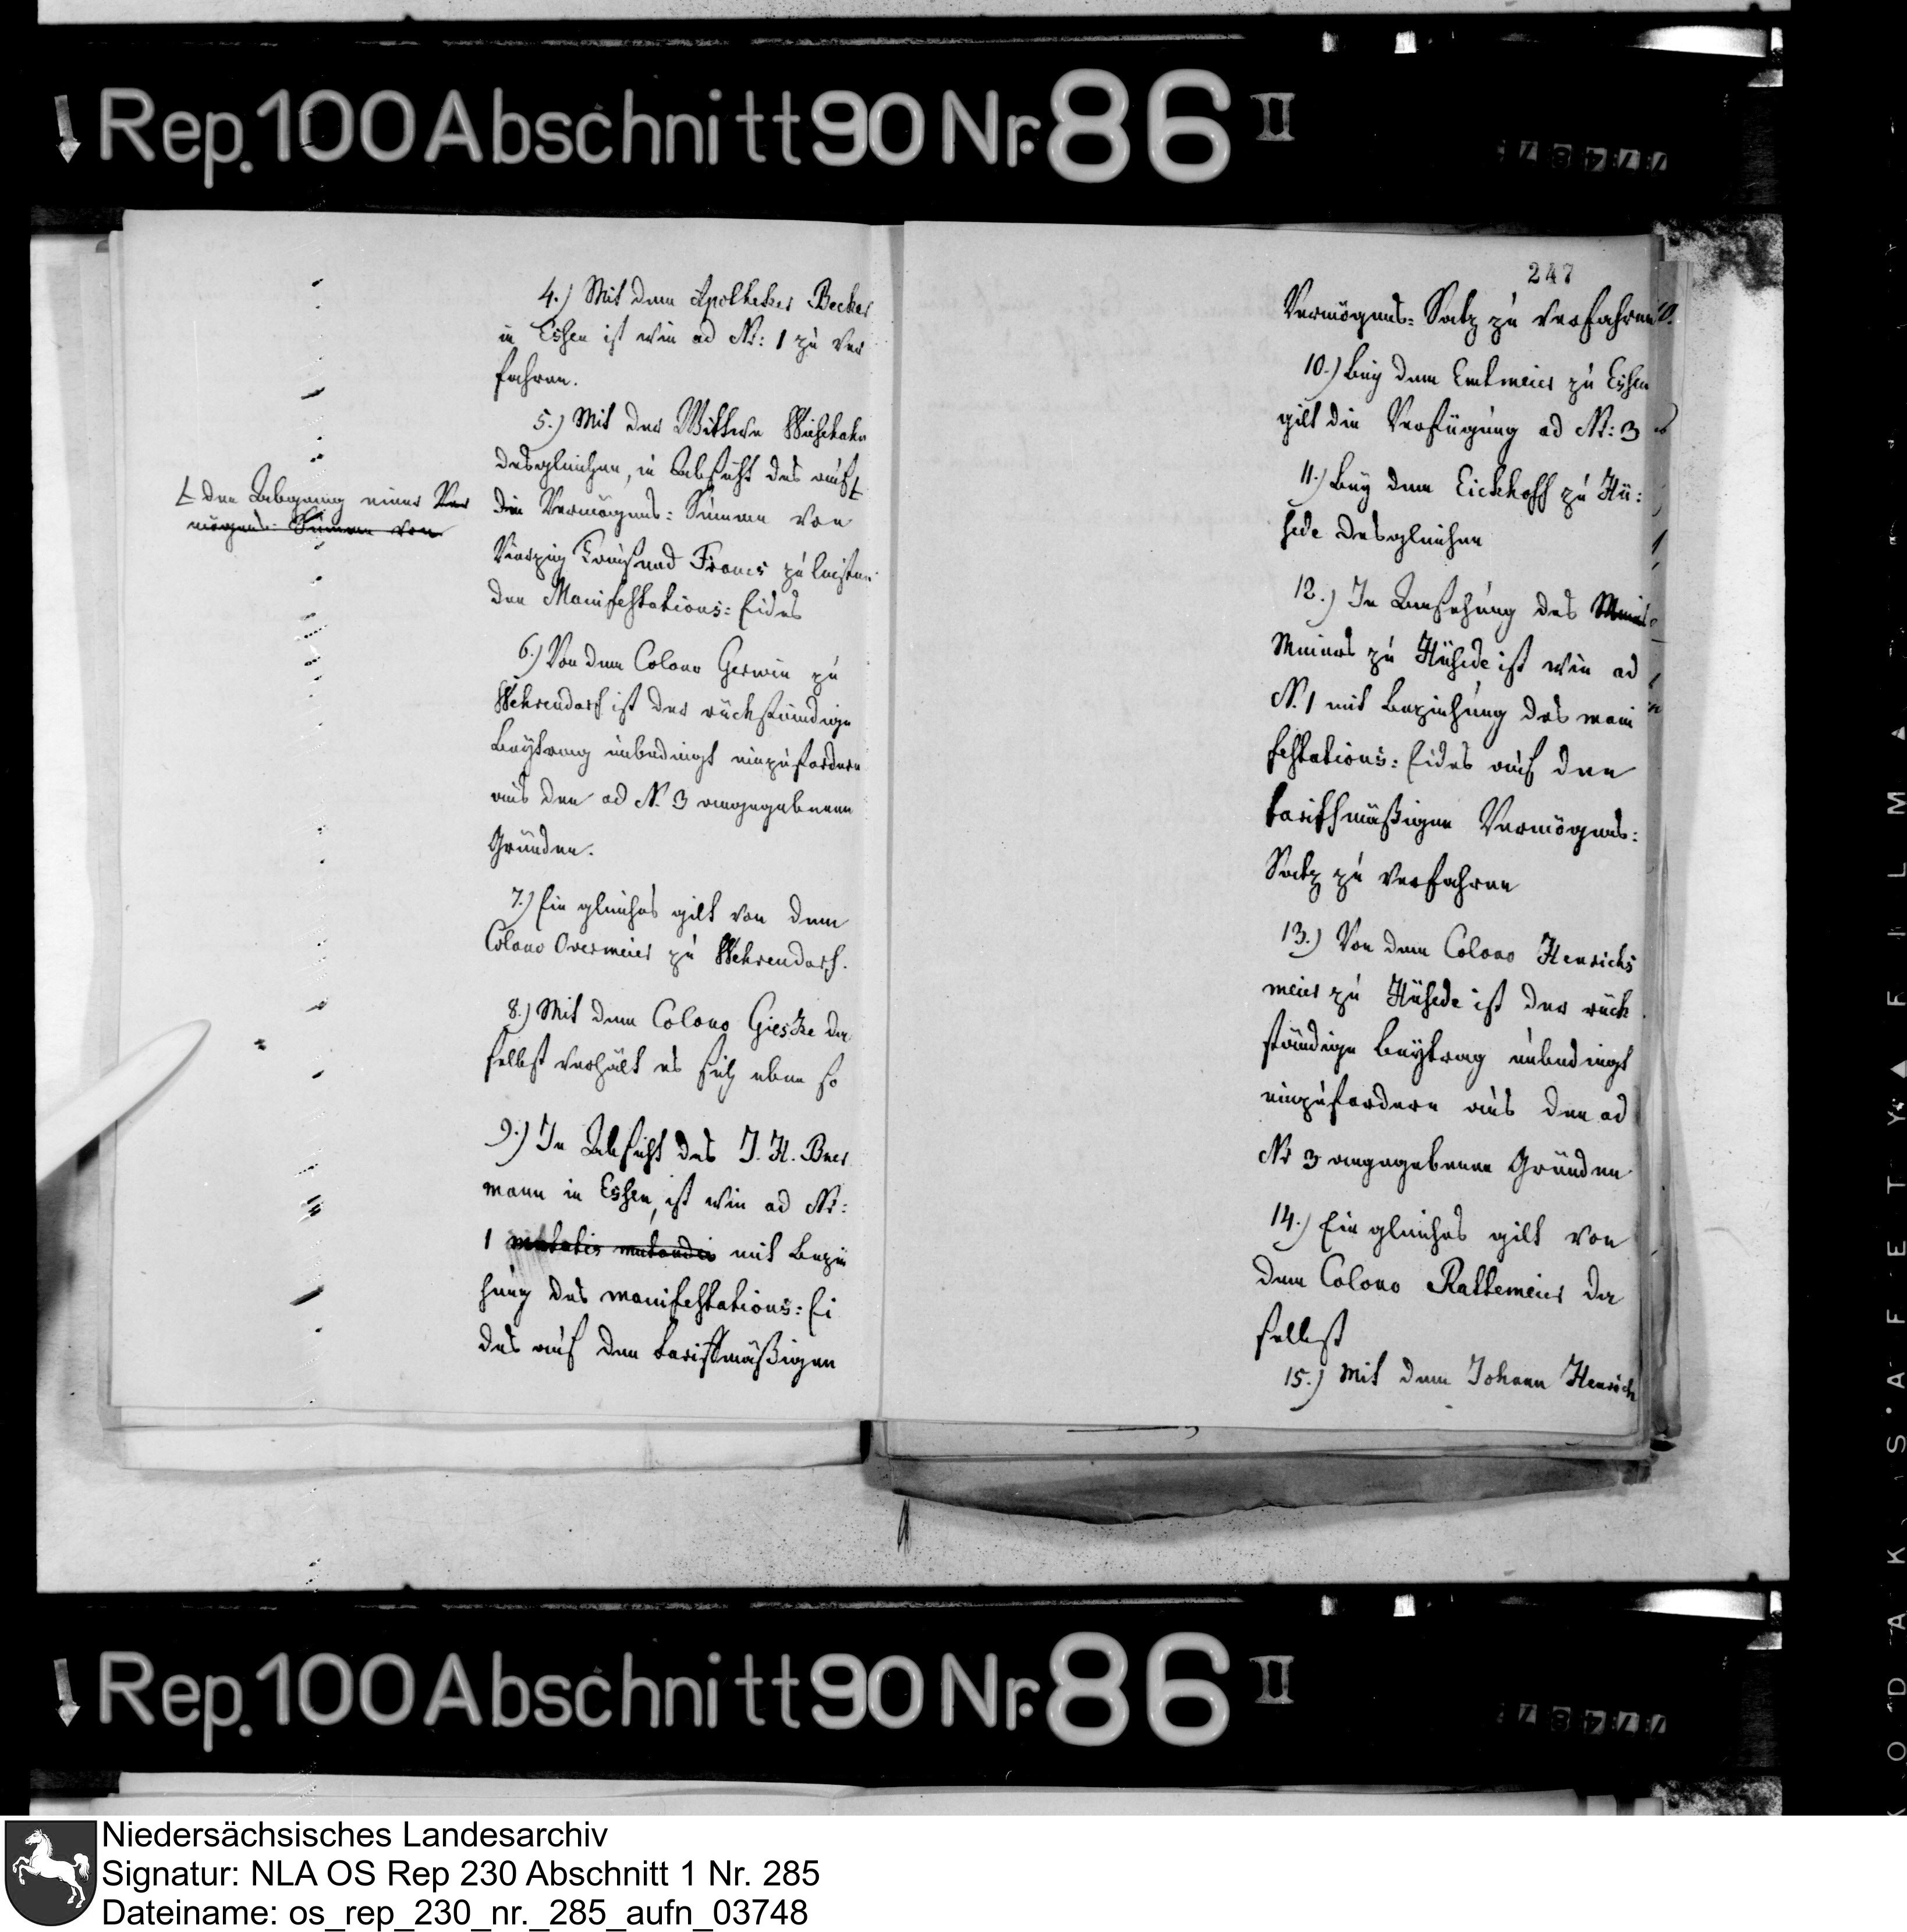 Rep. 100 Abschnitt 90 Nr. 86 II
4.) Mit dem Apotheker Becker
in Essen ist wie ad Nr: 1 zu ver
fahren.
5.) Mit der Wittwe
desgleichen, in Absicht des auf
die Vermögens: Summe von
Vierzig Tausend Francs zu leisten
den Manifestations: Eides
den Abgang einer Ver
mögens: Summe von
6.) Von dem Colono Gerwin zu
Wehrendorf ist der rückständige
Beytrag unbedingt einzufordern
aus den ad N. 3 angegebenen
Gründen.
7.) Ein gleiches gilt von dem
Colono Overmeier zu Wehrendorf.
8.) Mit dem Colono Gieske da
selbst verhält es sich eben so
9.) In Absicht des J. H. Buer
mann in Essen, ist wie ad Nr:
1 mutatis mutandis mit Bezie
hung des manifestations: Ei
des auf den tariffmäßigen
247
Vermögens: Satz zu verfahren
10.) Bey dem Entmeier zu Essen
gilt die Verfügung ad Nr: 3
11.) Bey dem Eickhoff zu Hü:
sede desgleichen
12.) In Ansehung des
Meiers zu Hüsede ist wie ad
N. 1 mit Beziehung des mani
festations: Eides auf den
tariffmäßigen Vermögens:
Satz zu verfahren
13.) Von dem Colono Henrichs
meier zu Hüsede ist der rück
ständige Beytrag unbedingt
einzufordern aus den ad
Nr 3 angegebenen Gründen
14.) Ein gleiches gilt von
dem Colono Rattemeier da
selbst
15.) Mit dem Johann Henrich
Rep. 100 Abschnitt 90 Nr. 86 II
KODAK SAFETY FILM
Niedersächsisches Landesarchiv
Signatur: NLA OS Rep 230 Abschnitt 1 Nr. 285
Dateiname: os_rep_230_nr._285_aufn_03748